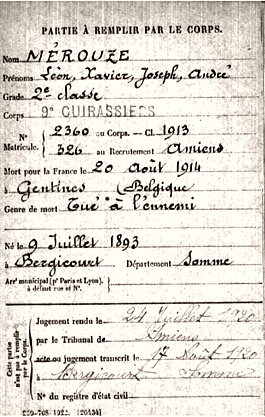 PARTIE À REMPLIR PAR LE CORPS.
Nom MÉROUZE
Prénoms Léon, Xavier, Joseph, André
Grade 2e classe
Corps 9e CUIRASSIERS
N° 2360 au Corps. — Cl. 1913
Matricule. 326 au Recrutement Amiens
Mort pour la France le 20 Août 1914
à Gentines (Belgique
Genre de mort Tué à l'ennemi
Né le 9 Juillet 1893
à Bergicourt Département Somme
Arrt municipal (pr Paris et Lyon),
à défaut rue et N°.
Cette partie n'est pas à remplir par le Corps.
Jugement rendu le 24 Juillet 1920
par le Tribunal de Amiens
acte ou jugement transcrit le 17 Août 1920
à Bergicourt Somme
N° du registre d'état civil
[20434]